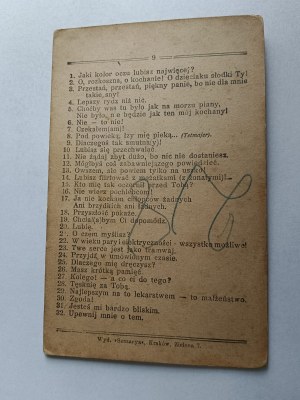 9
1. Jaki kolor oczu lubisz najwięcej?
2. O, rozkoszna, o kochanie! O dzieciaku słodki Ty!
3. Przestań, przestań, piękny panie, bo nie dla mnie
takie, any!
4. Lepszy rydz niż nic.
5. Choćby was tu było jak na morzu piany,
Nie będzie jak ten mój kochany!
6. Nie — to nie!
7. Czekoladami!
8. Pod powieką, łzy mię pieką... (Tetmajer).
9. Dlaczegoś tak smutny(a)!
10. Lubisz się przechwalać.
11. Nie żądaj zbyt dużo, bo nic nie dostaniesz.
12. Mógłbyś coś zabawniejszego powiedzieć.
13. Owszem, ale powiem tylko na uszko!
14. Lubisz flirtować z mężatkami (żonatymi)!
15. Kto się tak Tobą?
16. Nie wierz pochlebcom!
17. Ja nie kocham chłopców żadnych
Ani brzydkich ani ładnych.
18. Przyszłość pokaże.
19. Chciał(a)bym Ci dopomódz.
20. Lubię.
21. O czem myślisz?
22. W wieku pary i elektryczności - wszystko możliwe!
23. Twe serce jest jako tramwaj.
24. Przyjdź w umówionym czasie.
25. Dlaczego mię dręczysz?
26. Masz krótką pamięć
27. Kolego! — a co ci do tego?
28. Tęsknię za Tobą.
29. Najlepszym na to lekarstwem — to małżeństwo.
30. Zgoda!
31. Jesteś mi bardzo bliskim.
32. Upewnij mnie o tem.
Wyd. Kraków,